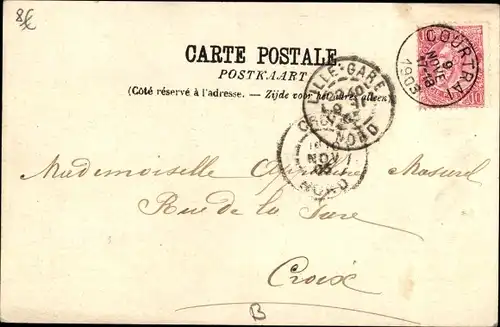 8f
CARTE POSTALE
POSTKAART
(Côté réservé à l'adresse. — Zijde voor het adres alleen)
COURTRAI
9
NOVE
17-18
1903
10 10
LILLE-GARE
NORD
NOV
NORD
Mademoiselle Masurel
Rue de la Gare
Croix
B